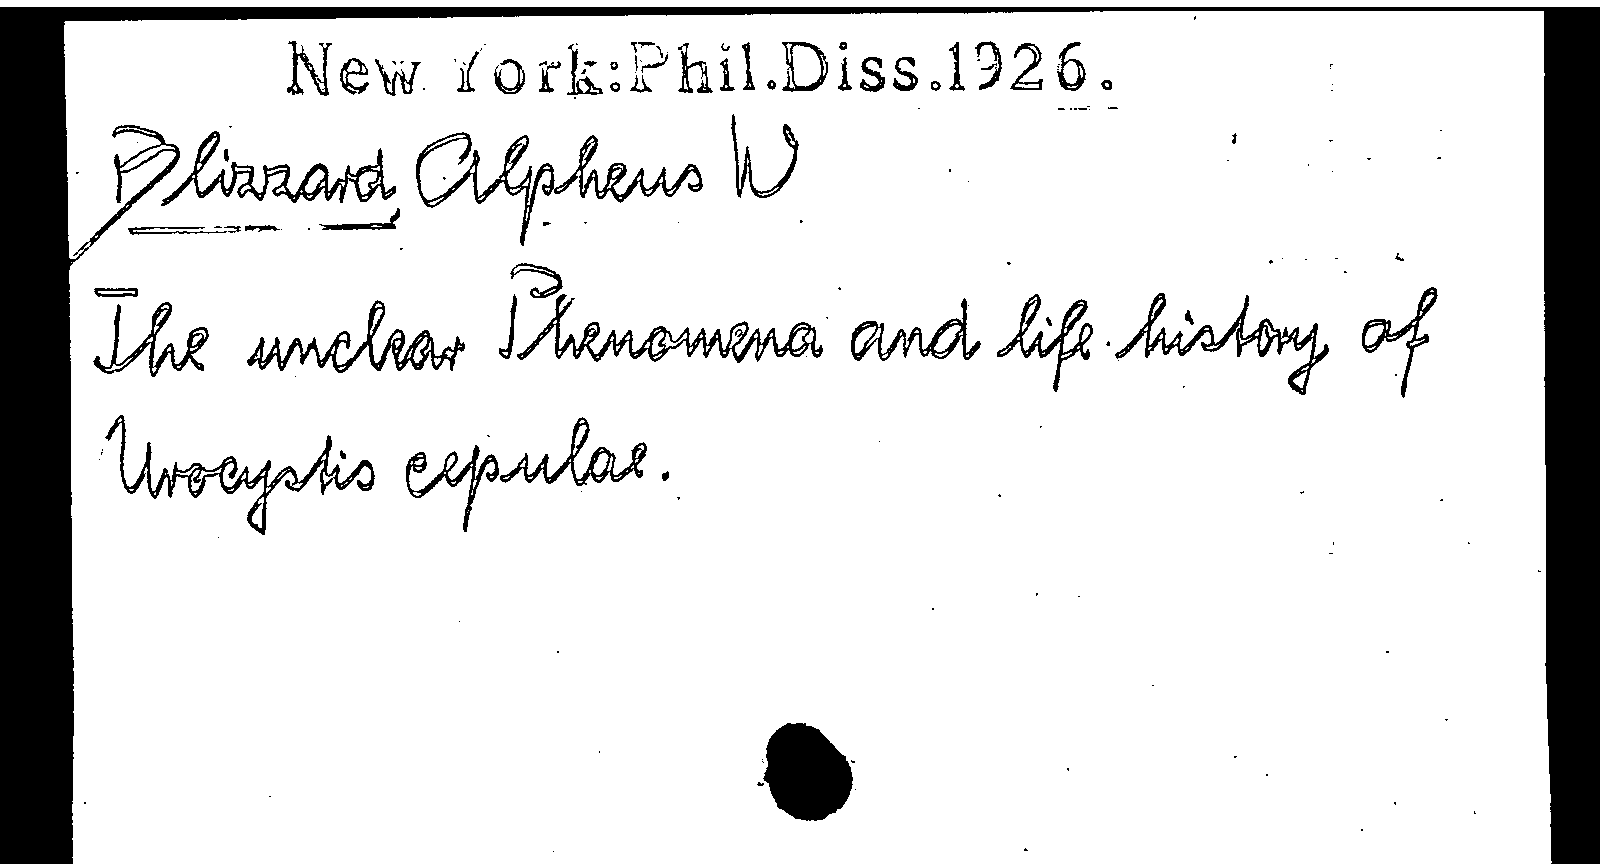 New York:Phil.Diss.1926.
Blizzard, Alpheus W
The unclear Phenomena and life history of
Urocystis cepulae.